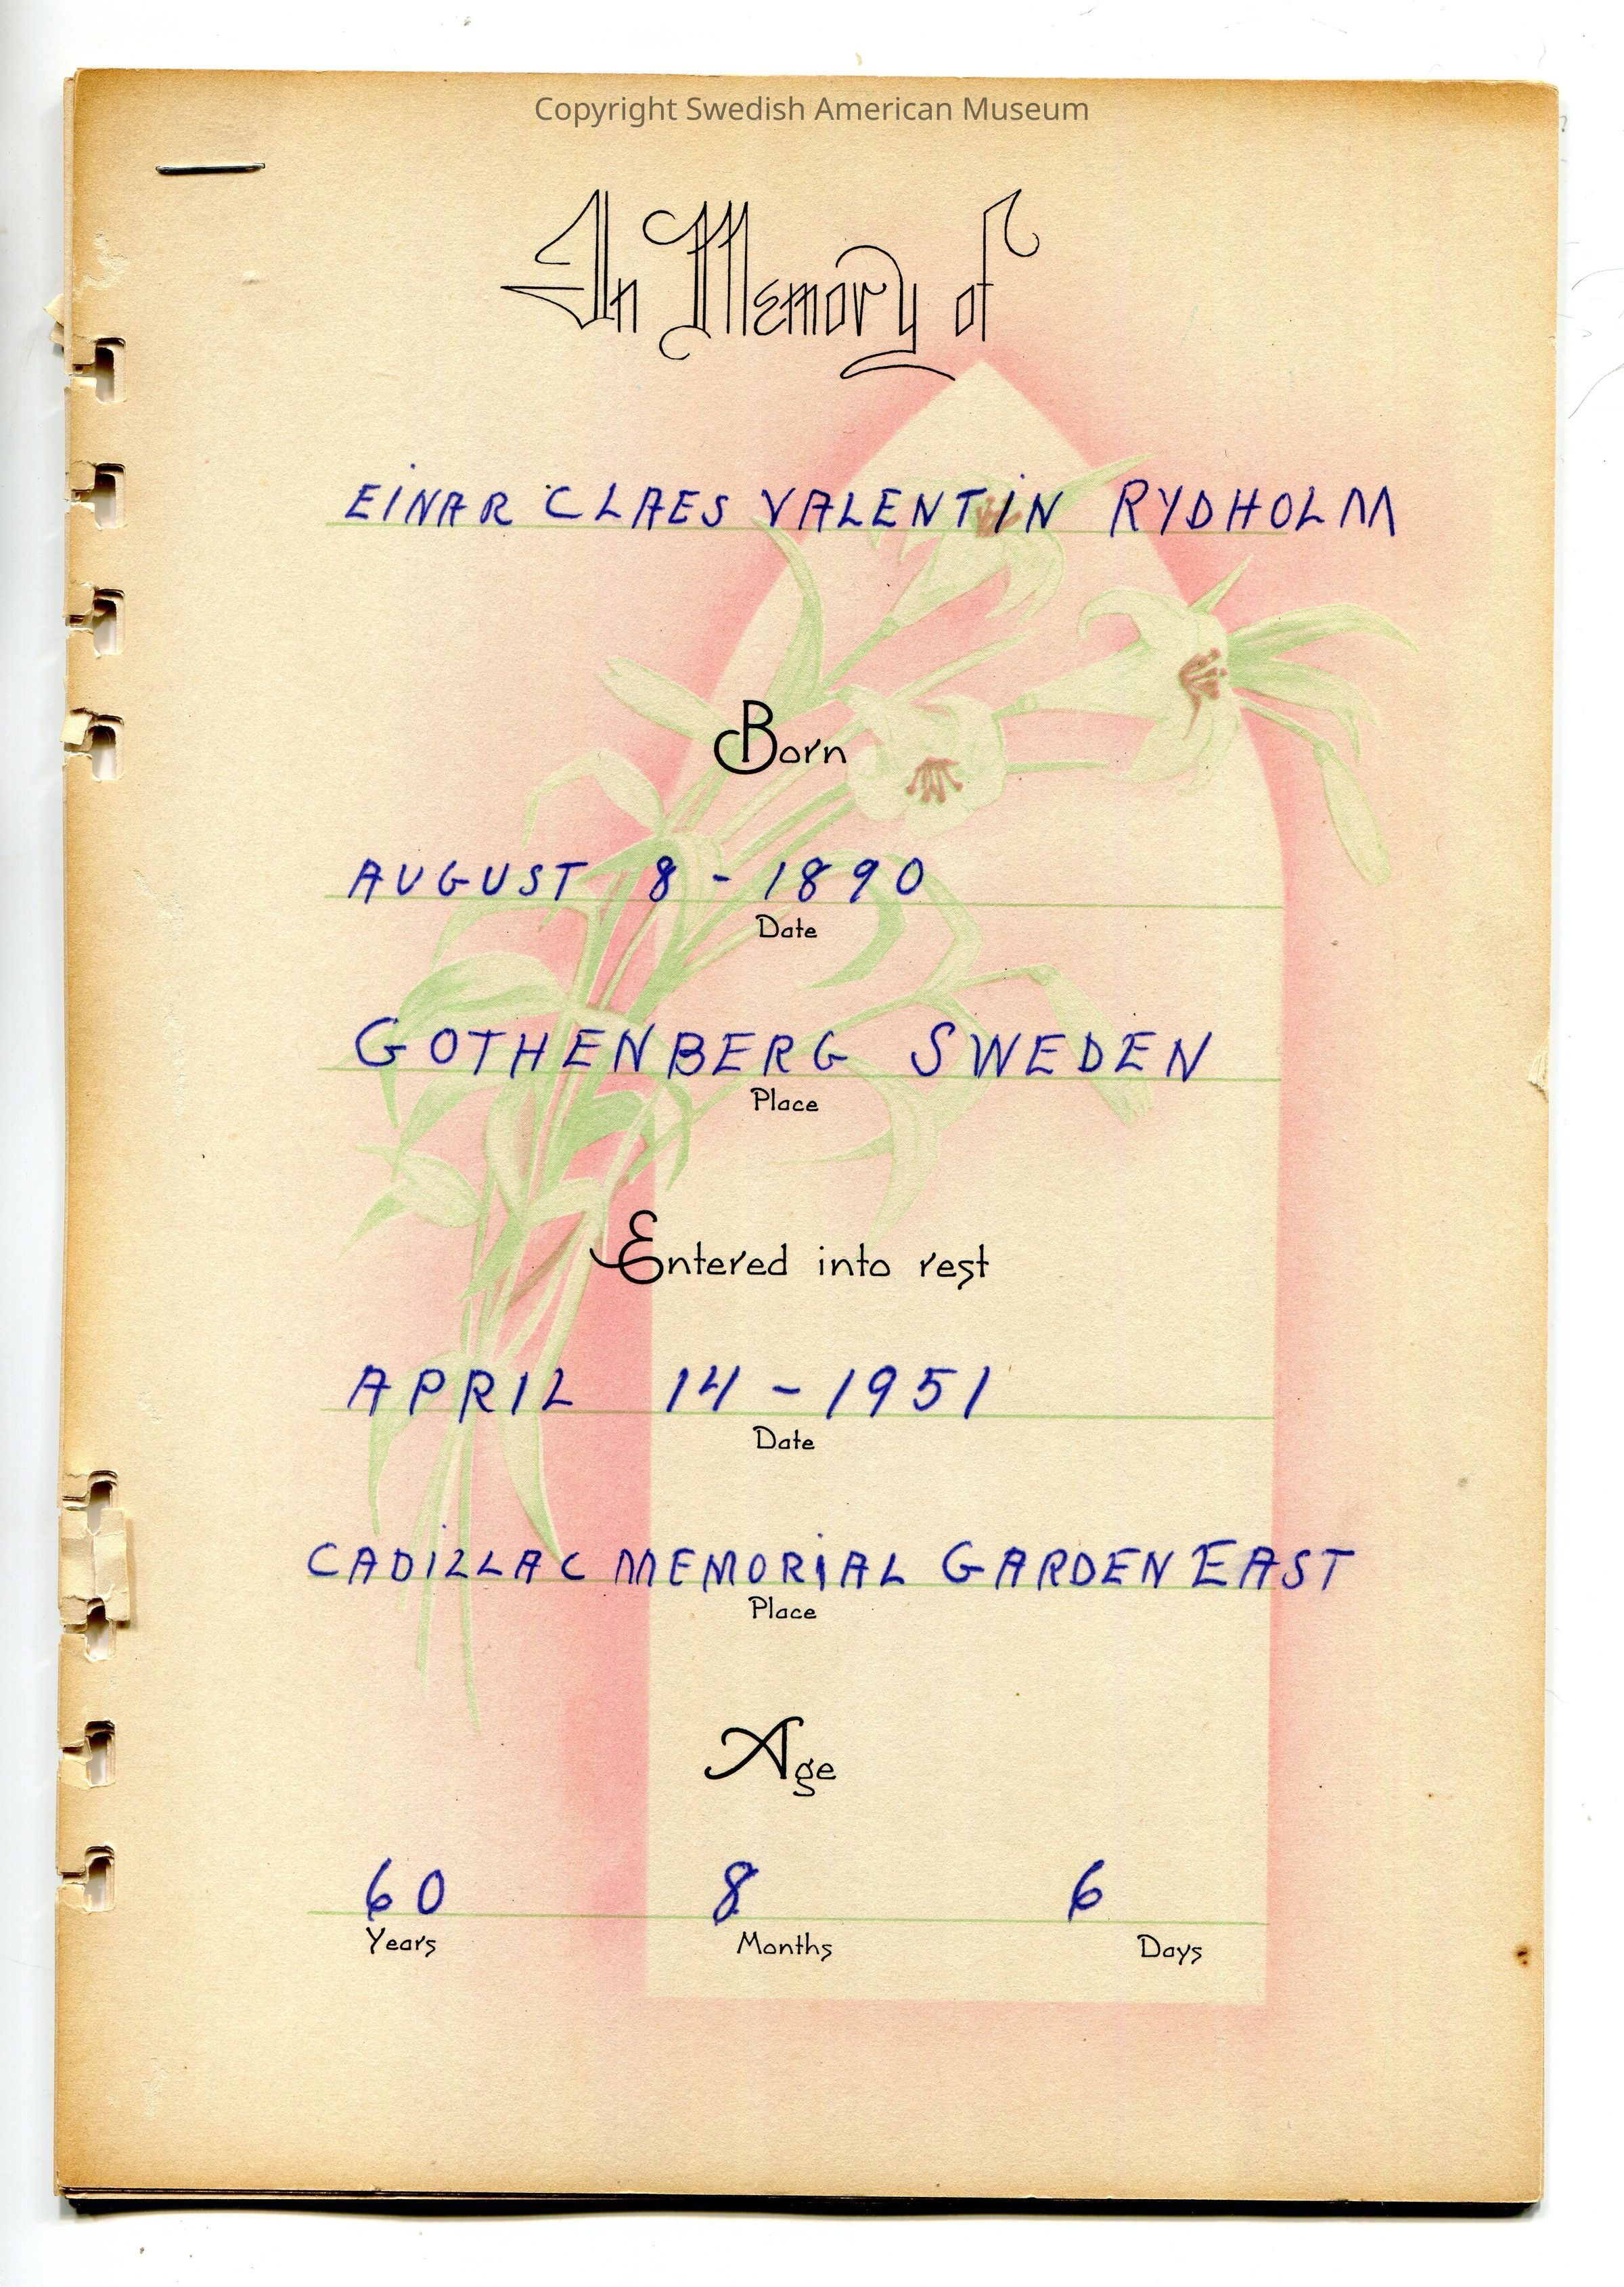 Copyright Swedish American Museum
In Memory of
EINAR CLAES VALENTIN RYDHOLM
Born
AUGUST 8 - 1890
Date
GOTHENBERG SWEDEN
Place
Entered into rest
APRIL 14 - 1951
Date
CADILLAC MEMORIAL GARDEN EAST
Place
Age
60 8 6
Years Months Days